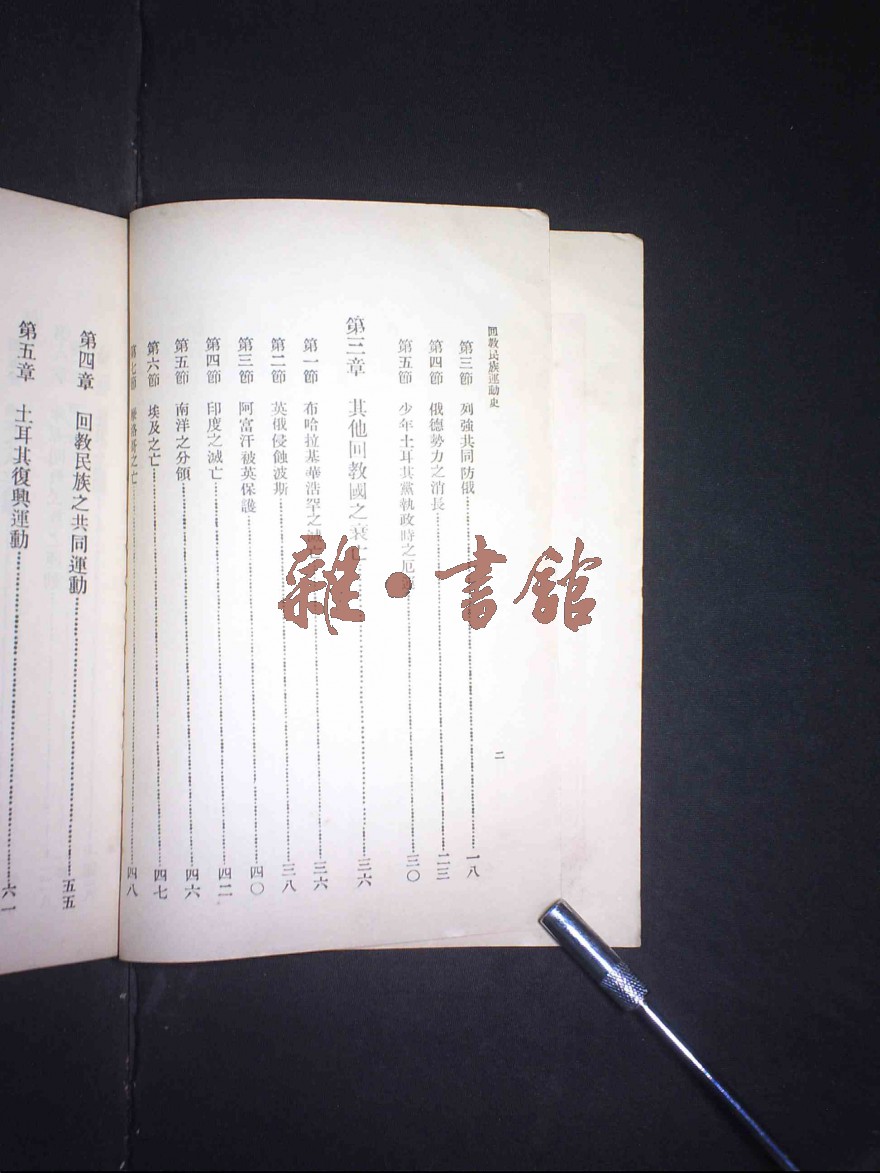 回教民族運動史
二
第三節 列強共同防俄 一八
第四節 俄德勢力之消長 二三
第五節 少年土耳其黨執政時之厄運 三〇
第三章 其他回教國之衰亡 三六
第一節 布哈拉基華浩罕之滅亡 三六
第二節 英俄侵蝕波斯 三八
第三節 阿富汗被英保護 四〇
第四節 印度之滅亡 四二
第五節 南洋之分領 四六
第六節 埃及之亡 四七
第七節 之亡 四八
第四章 回教民族之共同運動 五五
第五章 土耳其復興運動 六一
雜·書館